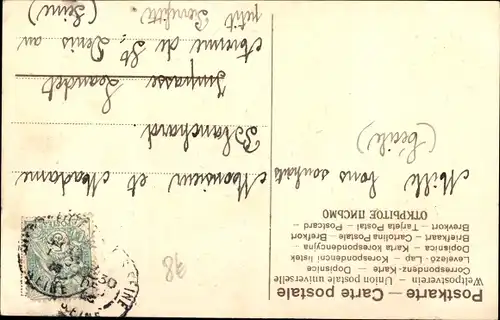 Postkarte — Carte postale
Weltpostverein — Union postale universelle
Correspondenz-Karte — Dopisnica
Levelezö-Lap — Korespondenční lístek
Dopisnica — Karta Korespondencyjna
Briefkaart — Cartolina Postale — Brefkort
Brevkort — Tarjeta Postal — Postcard
ОТКРЫТОЕ ПИСЬМО
Mille bons souhaits
(Cécile)
Monsieur et Madame
Blanchard
Impasse
Avenue de St Denis au
petit
(Seine)
78